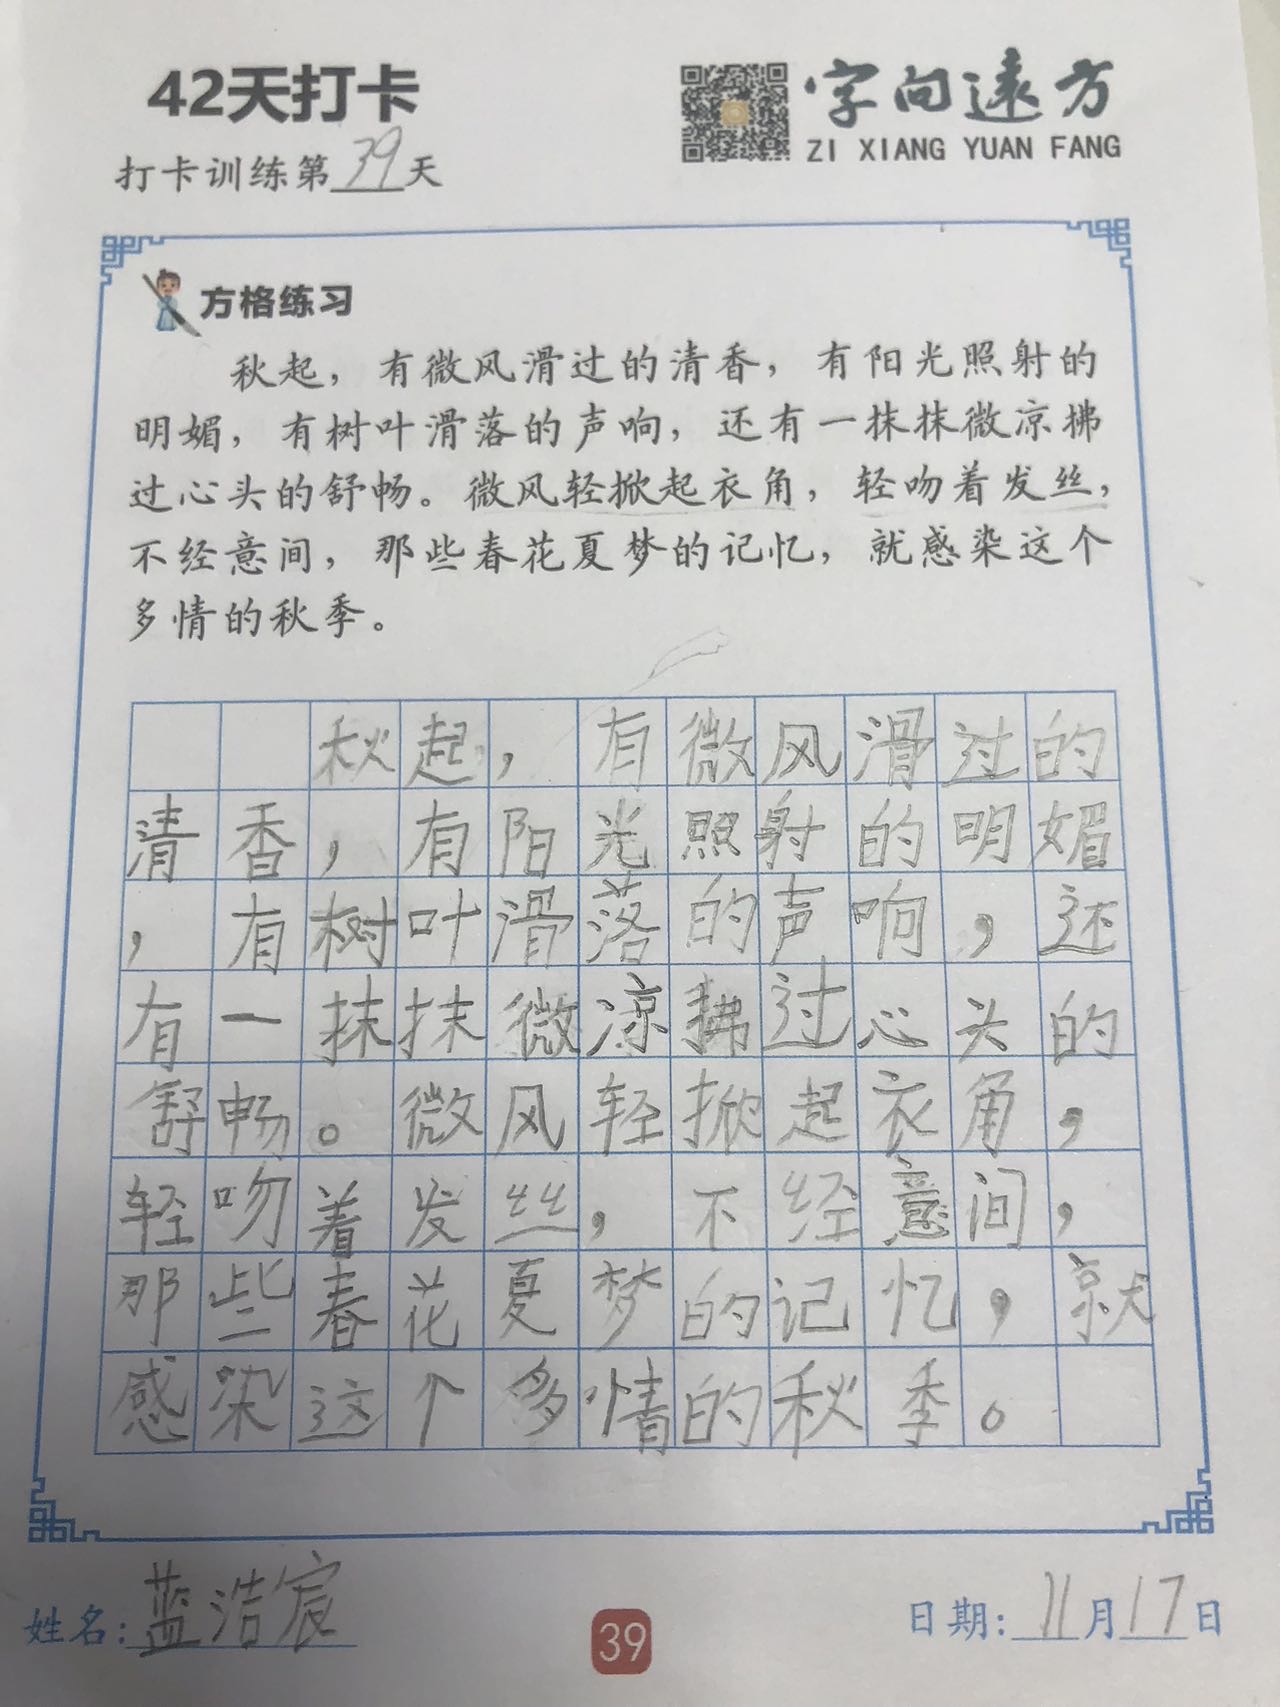 42天打卡
字向遠方
ZI XIANG YUAN FANG
打卡训练第39天
方格练习
秋起，有微风滑过的清香，有阳光照射的
明媚，有树叶滑落的声响，还有一抹抹微凉拂
过心头的舒畅。微风轻掀起衣角，轻吻着发丝，
不经意间，那些春花夏梦的记忆，就感染这个
多情的秋季。
秋起，有微风滑过的
清香，有阳光照射的明媚
，有树叶滑落的声响，还
有一抹抹微凉拂过心头的
舒畅。微风轻掀起衣角，
轻吻着发丝，不经意间，
那些春花夏梦的记忆，就
感染这个多情的秋季。
姓名：蓝洁宸
39
日期：11月17日